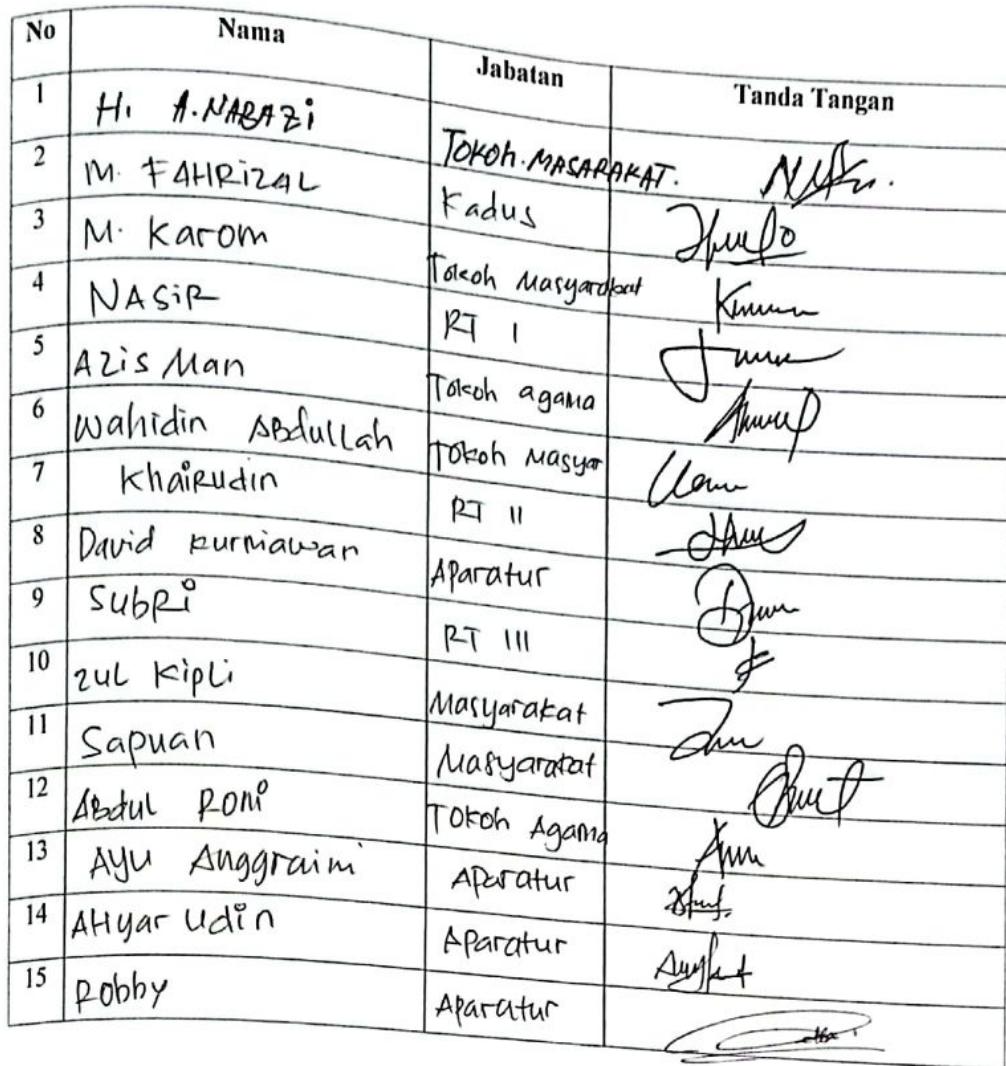 No Nama Jabatan Tanda Tangan
1 H. A. NABAZi TOKOH. MASARAKAT.
2 M. FAHRIZAL Kadus
3 M. Karom Tokoh Masyarakat
4 NASIR RT I
5 Azis Man Tokoh agama
6 Wahidin ABdulLah Tokoh Masyar
7 Khairudin RT II
8 David kurniawan Aparatur
9 SubRi RT III
10 zul KipLi Masyarakat
11 Sapuan Masyarakat
12 ABdul Roni Tokoh Agama
13 Ayu Anggraini Aparatur
14 AHyar Udin Aparatur
15 Robby Aparatur